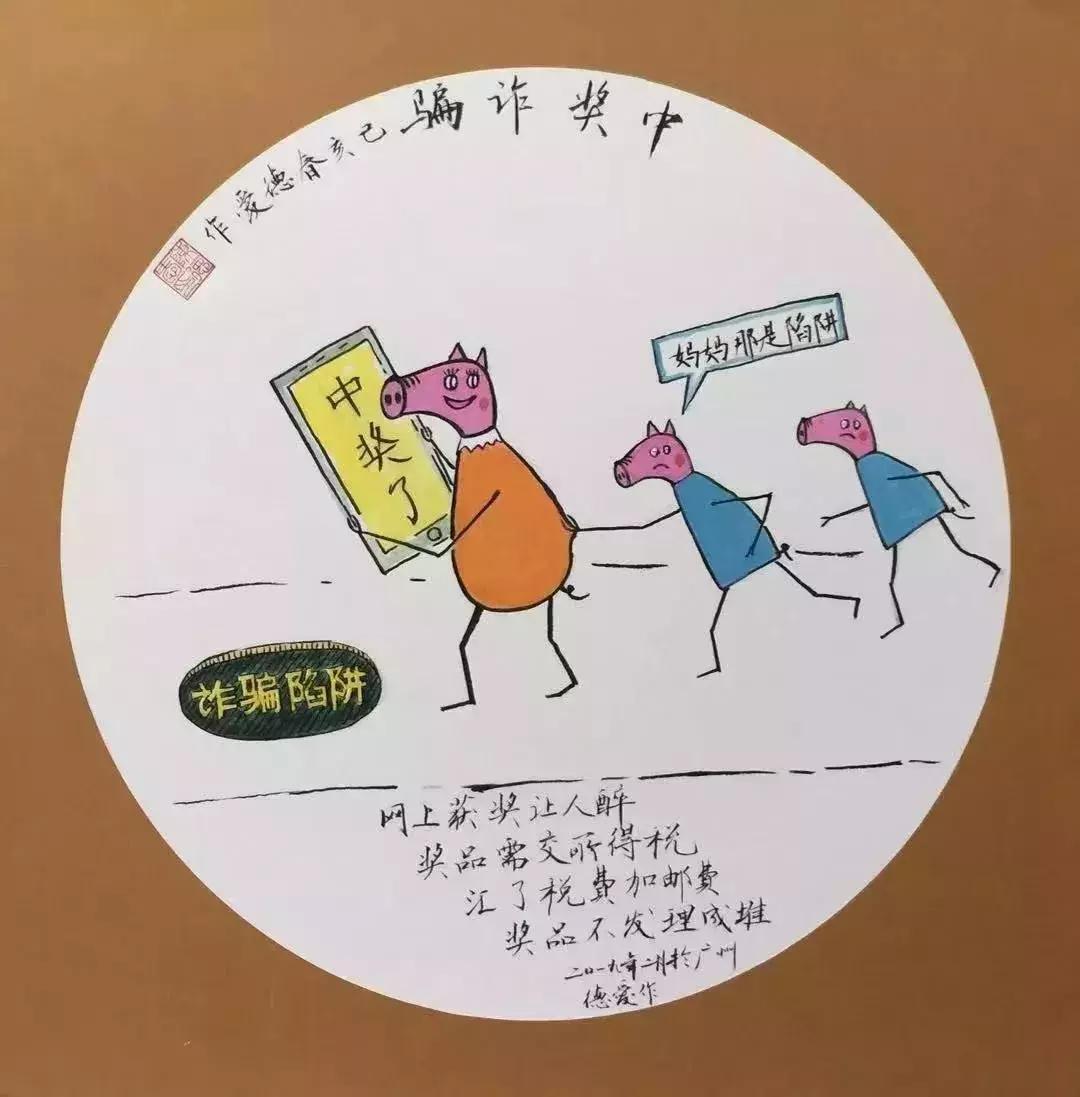 中奖诈骗
己亥春德爱作
妈妈那是陷阱
中奖了
诈骗陷阱
网上获奖让人醉
奖品需交所得税
汇了税费加邮费
奖品不发理成堆
二〇一九年二月于广州
德爱作